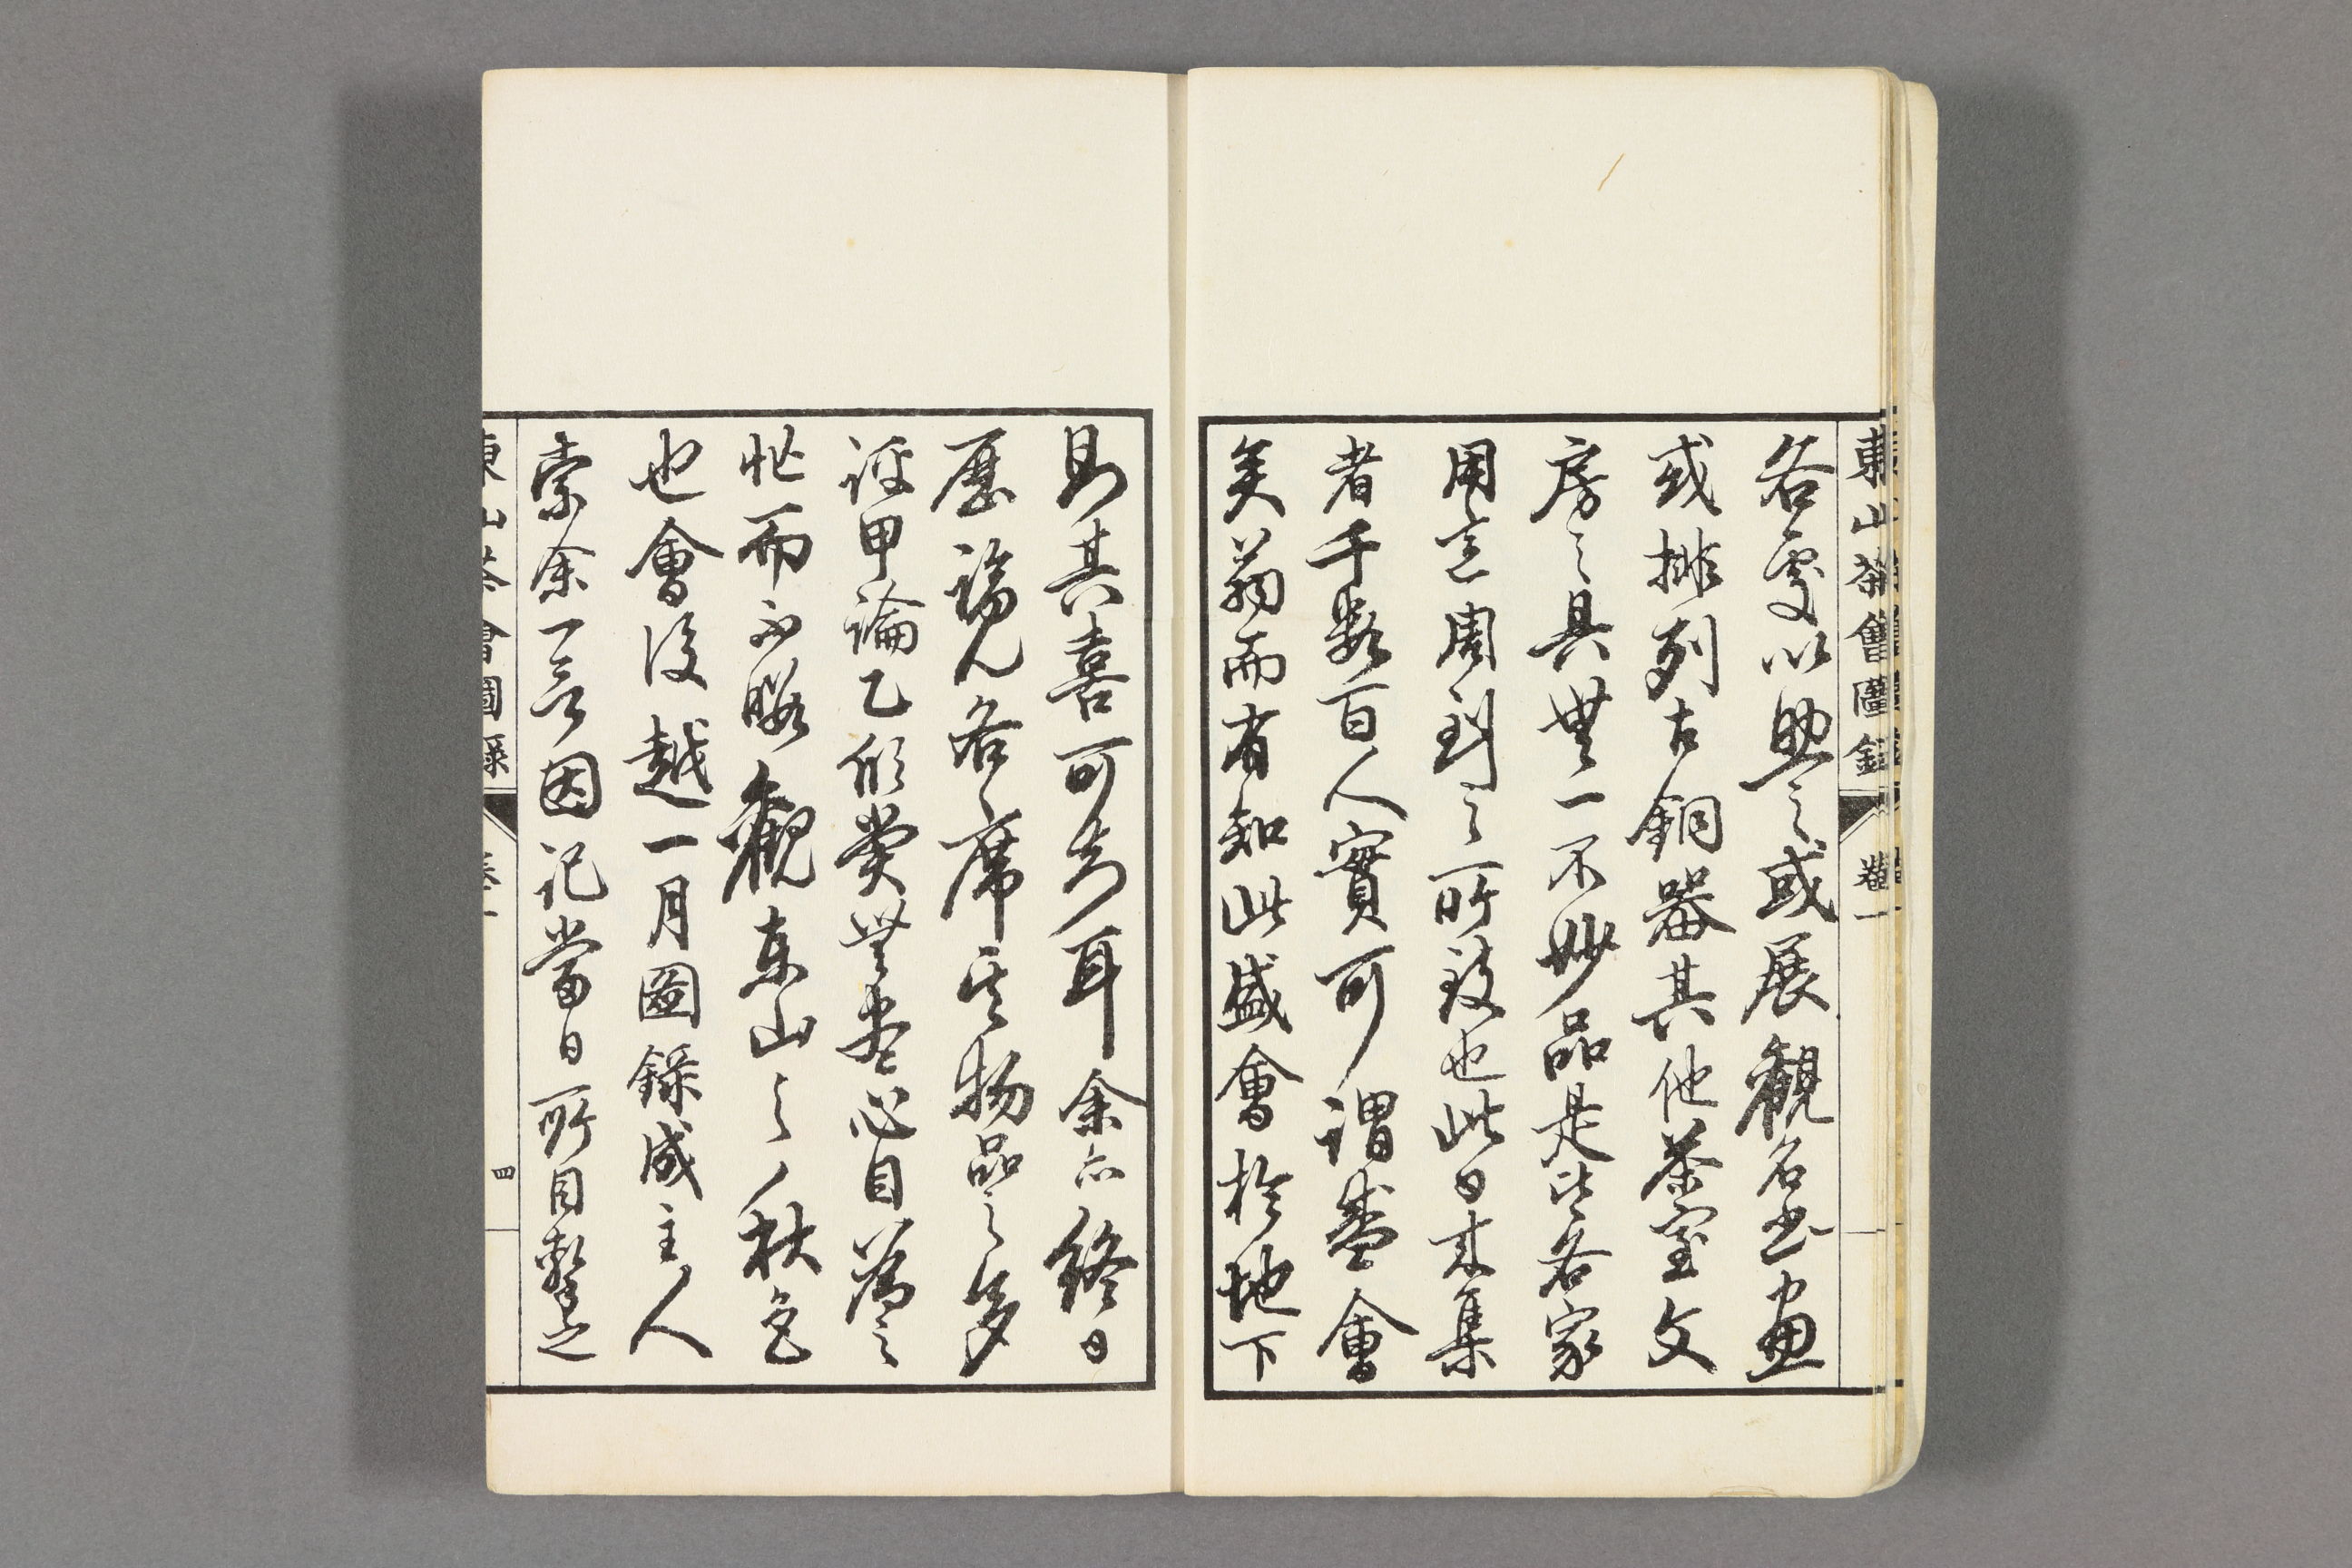 東山茶會圖録
卷一
各處以助之或展觀名書畫
或排列古銅器其他茶室文
房之具無一不妙品是皆各家
用意周到之所致也此日來集
者千數百人實可謂盛會
矣翁而有知此盛會於地下
則其喜可知耳余亦終日
歷覽各席其物品之多
評甲論乙欣賞無盡心目為之
忙而不暇觀東山之秋色
也會後越一月圖録成主人
索余一言因記當日所目擊之
東山茶會圖録
卷一
四